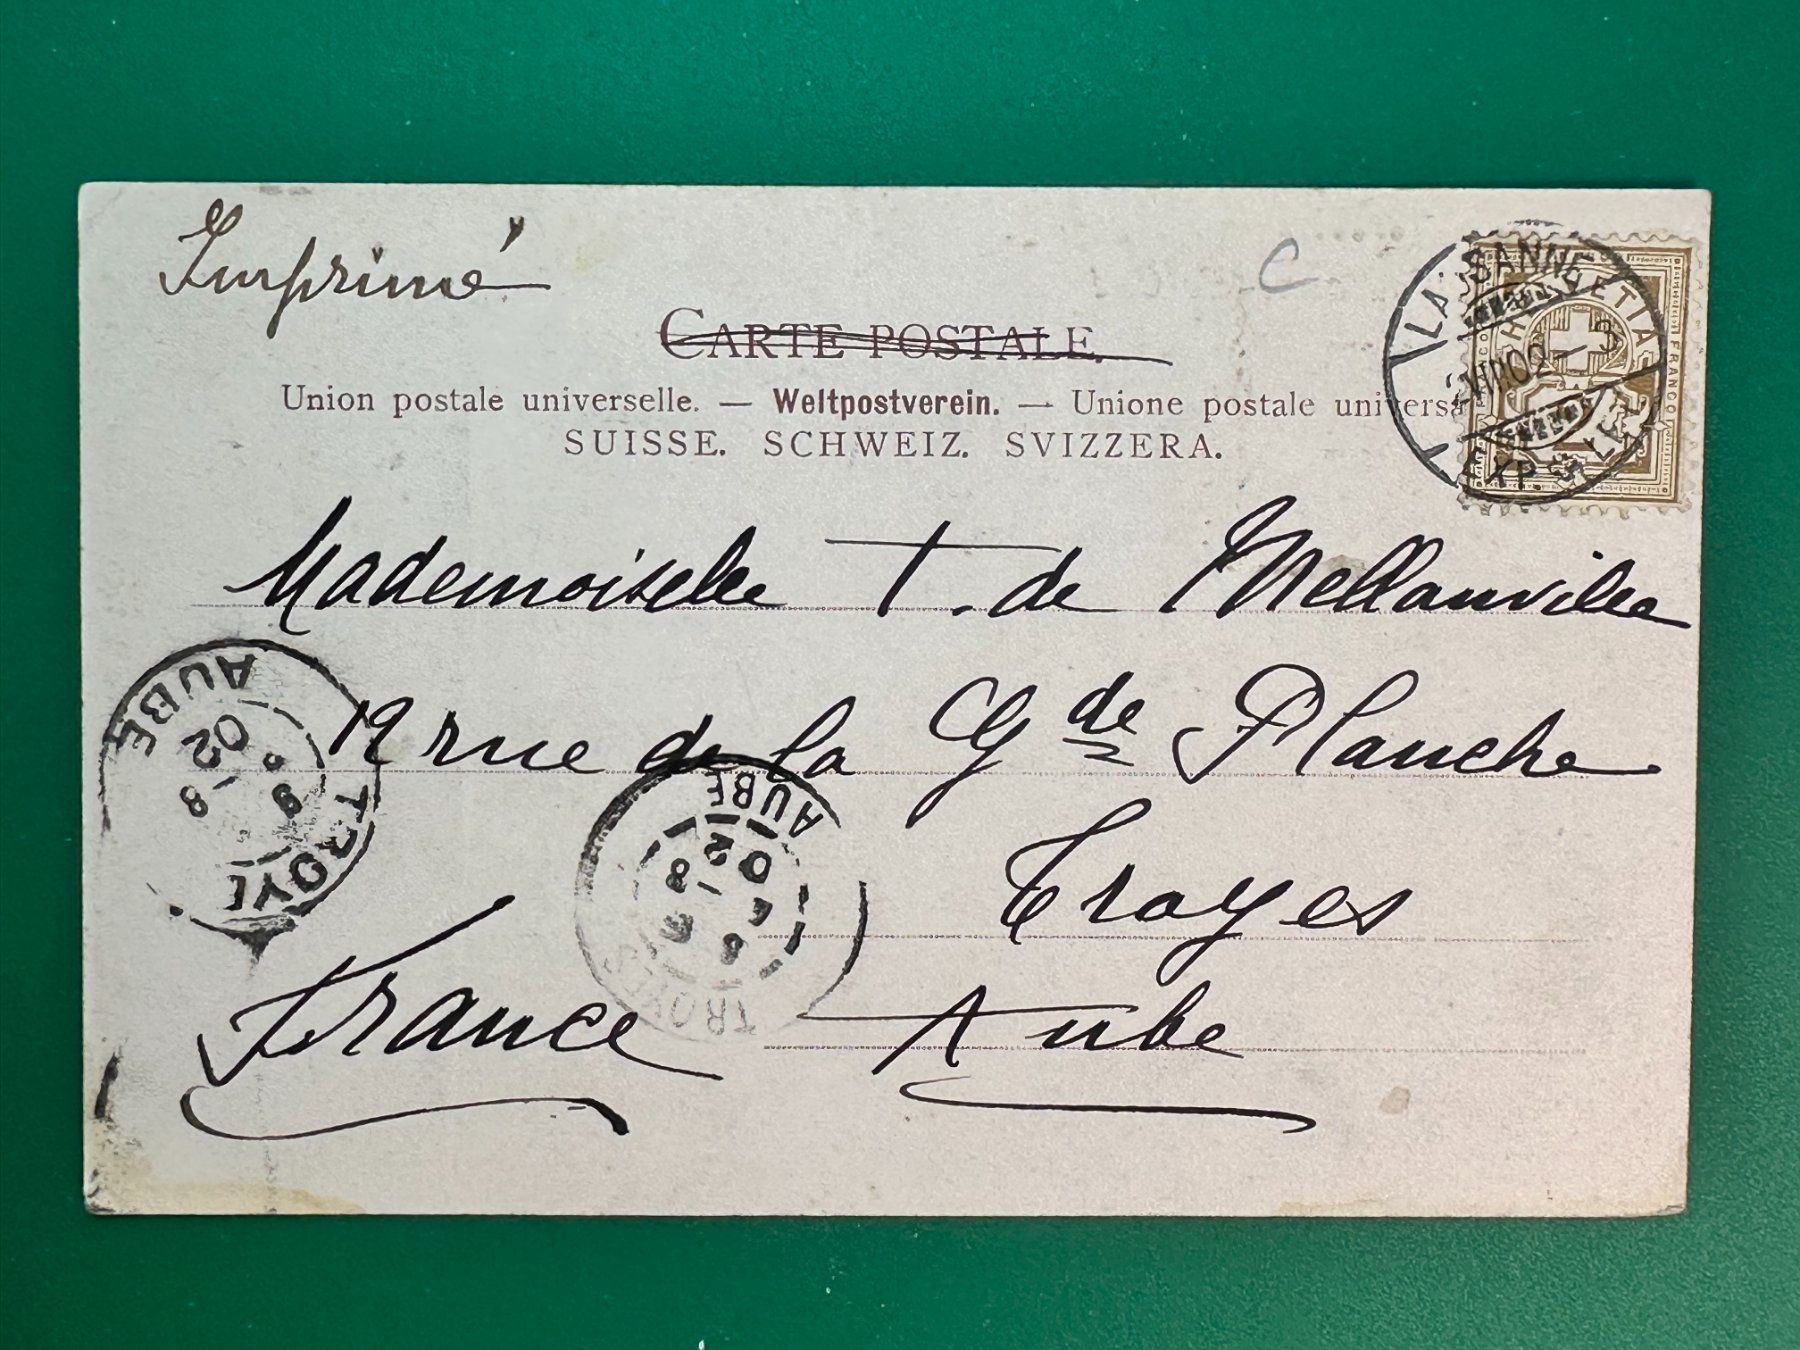 Imprimé
C
CARTE POSTALE.
Union postale universelle. — Weltpostverein. — Unione postale universa
SUISSE. SCHWEIZ. SVIZZERA.
LAUSANNE
VIII 02 – 3
EXP. LET
HELVETIA
FRANCO
Mademoiselle T. de Mellanville
12 rue de la Gde Planche
Troyes
Aube
France
TROYES
8
02
AUBE
TROYES
8
02
AUBE